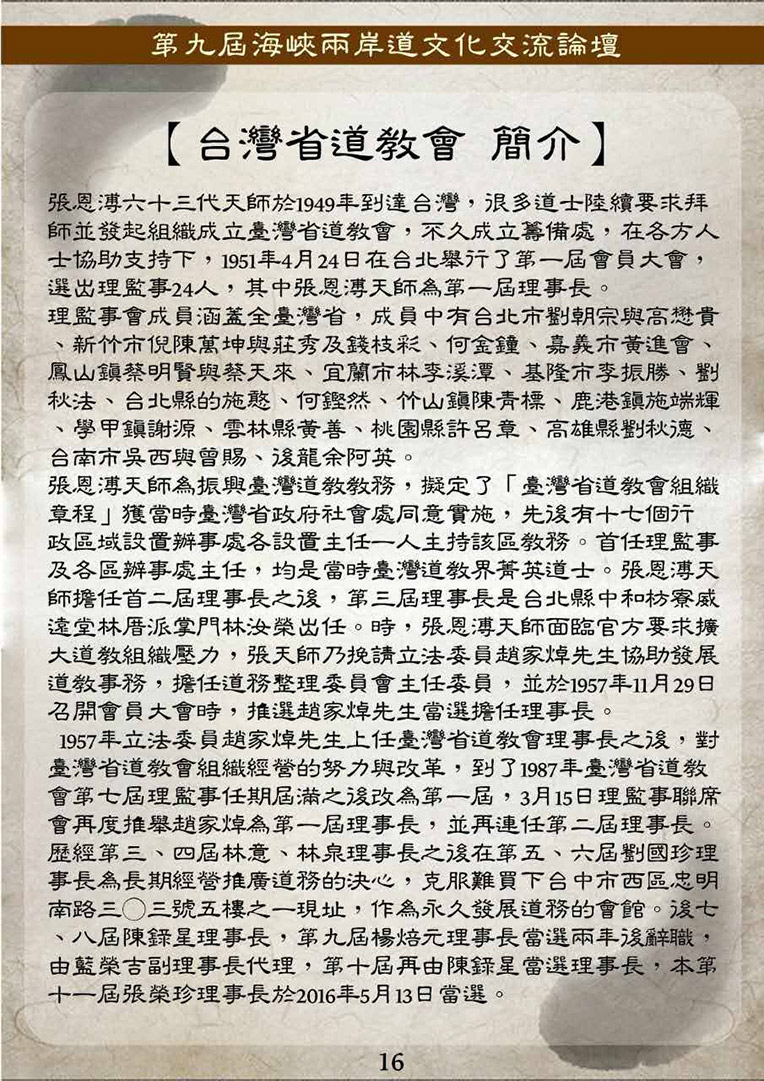 第九屆海峽兩岸道文化交流論壇
【台灣省道教會 簡介】
張恩溥六十三代天師於1949年到達台灣，很多道士陸續要求拜
師並發起組織成立臺灣省道教會，不久成立籌備處，在各方人
士協助支持下，1951年4月24日在台北舉行了第一屆會員大會，
選出理監事24人，其中張恩溥天師為第一屆理事長。
理監事會成員涵蓋全臺灣省，成員中有台北市劉朝宗與高懋貴
、新竹市倪陳萬坤與莊秀及錢枝彩、何金鐘、嘉義市黃進會、
鳳山鎮蔡明賢與蔡天來、宜蘭市林李溪潭、基隆市李振勝、劉
秋法、台北縣的施憨、何鏗然、竹山鎮陳青標、鹿港鎮施端輝
、學甲鎮謝源、雲林縣黃善、桃園縣許呂章、高雄縣劉秋德、
台南市吳西與曾賜、後龍余阿英。
張恩溥天師為振興臺灣道教教務，擬定了「臺灣省道教會組織
章程」獲當時臺灣省政府社會處同意實施，先後有十七個行
政區域設置辦事處各設置主任一人主持該區教務。首任理監事
及各區辦事處主任，均是當時臺灣道教界菁英道士。張恩溥天
師擔任首二屆理事長之後，第三屆理事長是台北縣中和枋寮威
遠堂林厝派掌門林汝榮出任。時，張恩溥天師面臨官方要求擴
大道教組織壓力，張天師乃挽請立法委員趙家焯先生協助發展
道教事務，擔任道務整理委員會主任委員，並於1957年11月29日
召開會員大會時，推選趙家焯先生當選擔任理事長。
1957年立法委員趙家焯先生上任臺灣省道教會理事長之後，對
臺灣省道教會組織經營的努力與改革，到了1987年臺灣省道教
會第七屆理監事任期屆滿之後改為第一屆，3月15日理監事聯席
會再度推舉趙家焯為第一屆理事長，並再連任第二屆理事長。
歷經第三、四屆林意、林泉理事長之後在第五、六屆劉國珍理
事長為長期經營推廣道務的決心，克服難買下台中市西區忠明
南路三〇三號五樓之一現址，作為永久發展道務的會館。後七
、八屆陳錄星理事長，第九屆楊焙元理事長當選兩年後辭職，
由藍榮吉副理事長代理，第十屆再由陳錄星當選理事長，本第
十一屆張榮珍理事長於2016年5月13日當選。
16